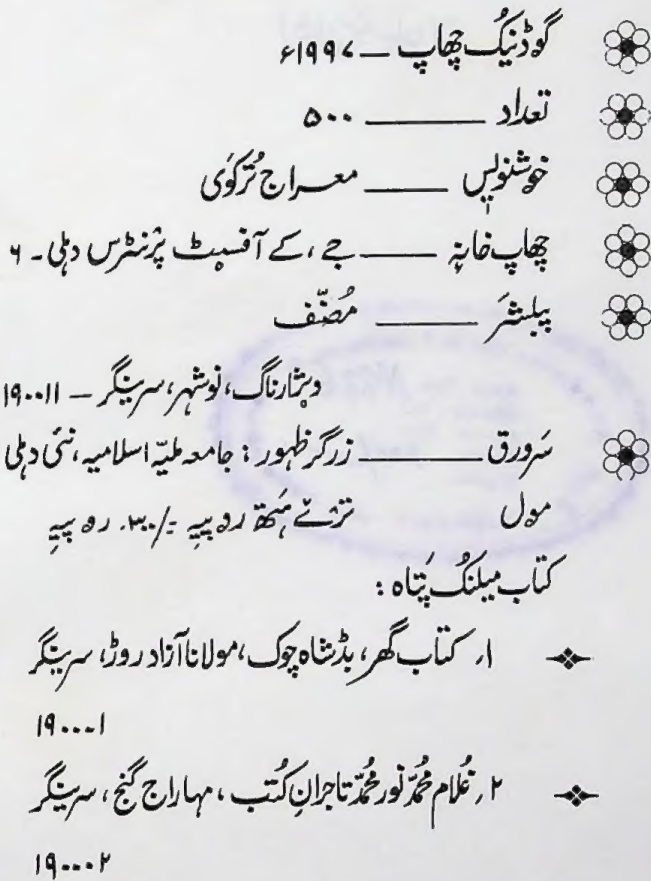 گۄڈنیُک چھاپ — ۱۹۹۷ء
تعداد ——— ۵۰۰
خوشنویٖس —— معراج تُرکوَی
چھاپ خانہٕ —— جے، کے آفسیٹ پرٛنٹرس دہلی۔ ۶
پبلشَر —— مُصنّف
وێژارناگ، نوشہر، سرینگر — ۱۹۰۰۱۱
سَرورق ——— زرگر ظہور: جامعہ ملیّہ اسلامیہ، نئی دہلی
مول ترٛےٚ ہَتھ روپیہِ =/۳۰۰ روپیہِ
کتاب میلنُک پَتاہ :
۱۔ کتاب گھر، بڈشاہ چوک، مولانا آزاد روڑ، سرینگر
۱۹۰۰۰۱
۲۔ غُلام محُمّد نور محُمّد تاجرانِ کُتب، مہاراج گنج، سرینگر
۱۹۰۰۰۲